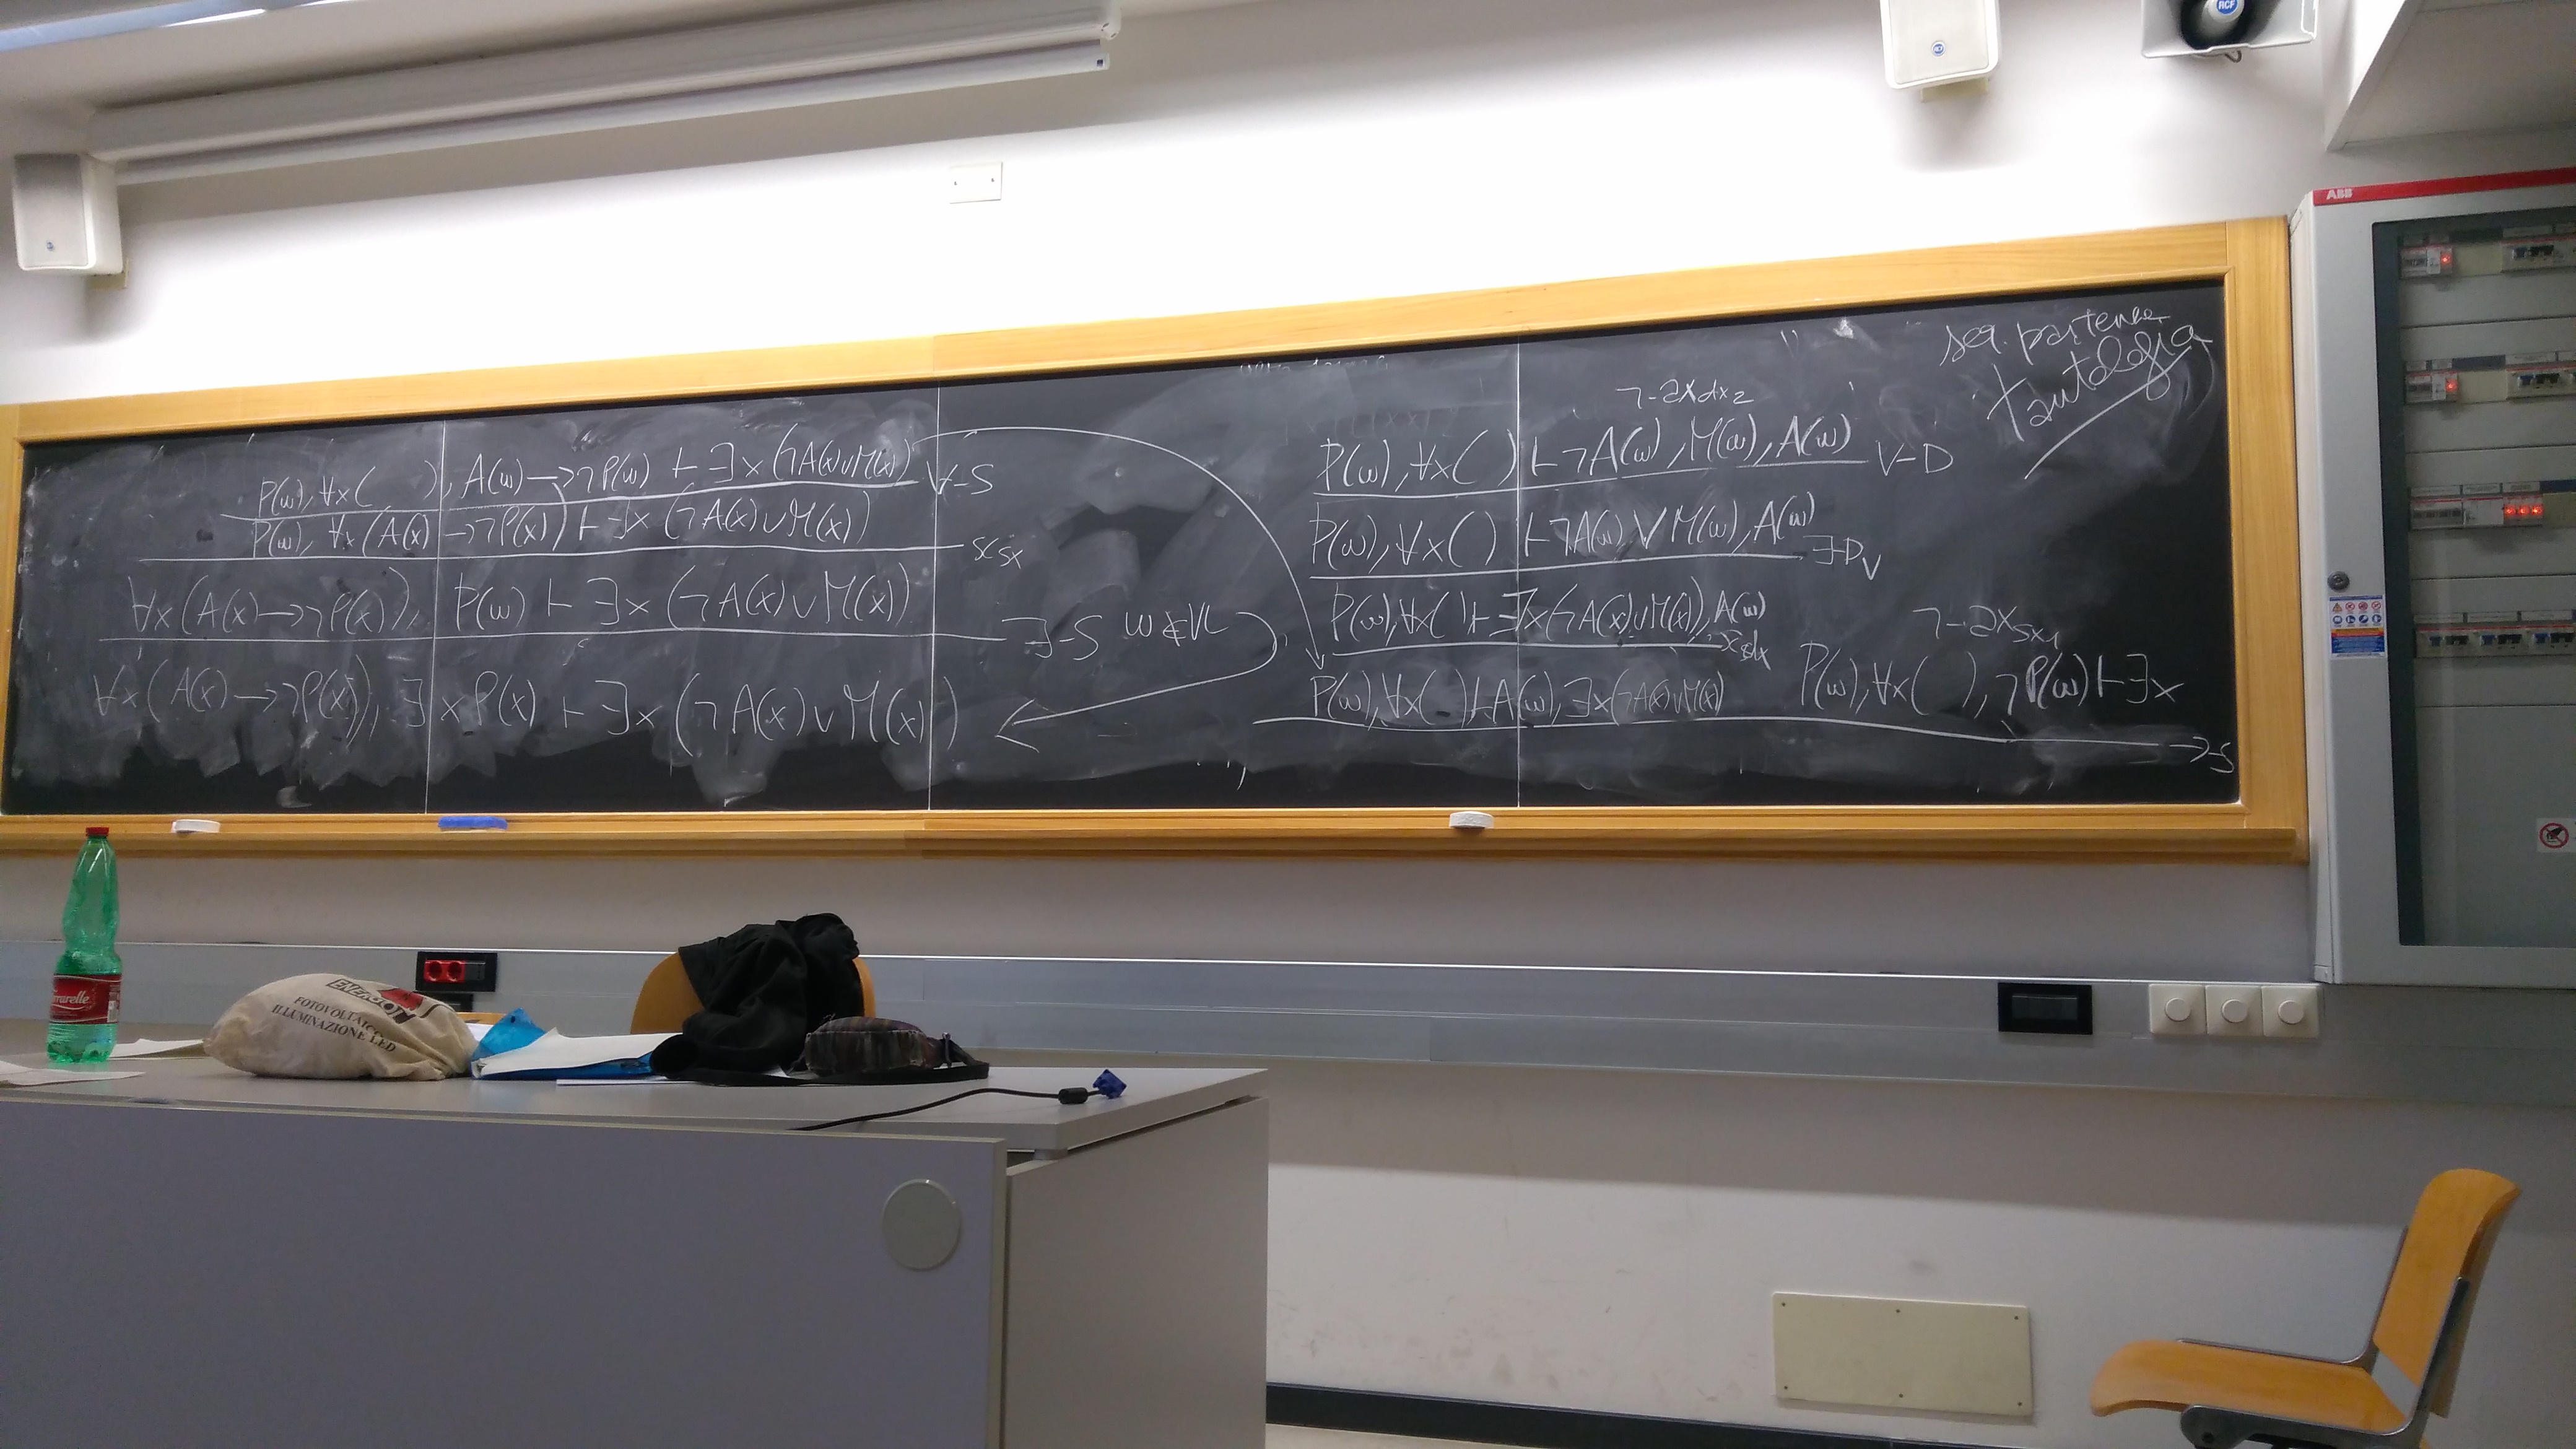 P(w), ∀x( ), A(w)→¬P(w) ⊢ ∃x(¬A(x)∨M(x)) ∀-S
P(w), ∀x(A(x)→¬P(x)) ⊢ ∃x(¬A(x)∨M(x))
sc sx
∀x(A(x)→¬P(x)), P(w) ⊢ ∃x(¬A(x)∨M(x))
∃-S w∉VL
∀x(A(x)→¬P(x)), ∃xP(x) ⊢ ∃x(¬A(x)∨M(x))
¬-ax dx2
P(w), ∀x( ) ⊢ ¬A(w), M(w), A(w) ∨-D
P(w), ∀x( ) ⊢ ¬A(w)∨M(w), A(w)
∃-Dv
P(w), ∀x( ) ⊢ ∃x(¬A(x)∨M(x)), A(w)
sc dx
P(w), ∀x( ) ⊢ A(w), ∃x(¬A(x)∨M(x))
¬-ax sx1
P(w), ∀x( ), ¬P(w) ⊢ ∃x
→-S
seq. partenza
tautologia
ABB
RCF
ENERGY
FOTOVOLTAICO
ILLUMINAZIONE LED